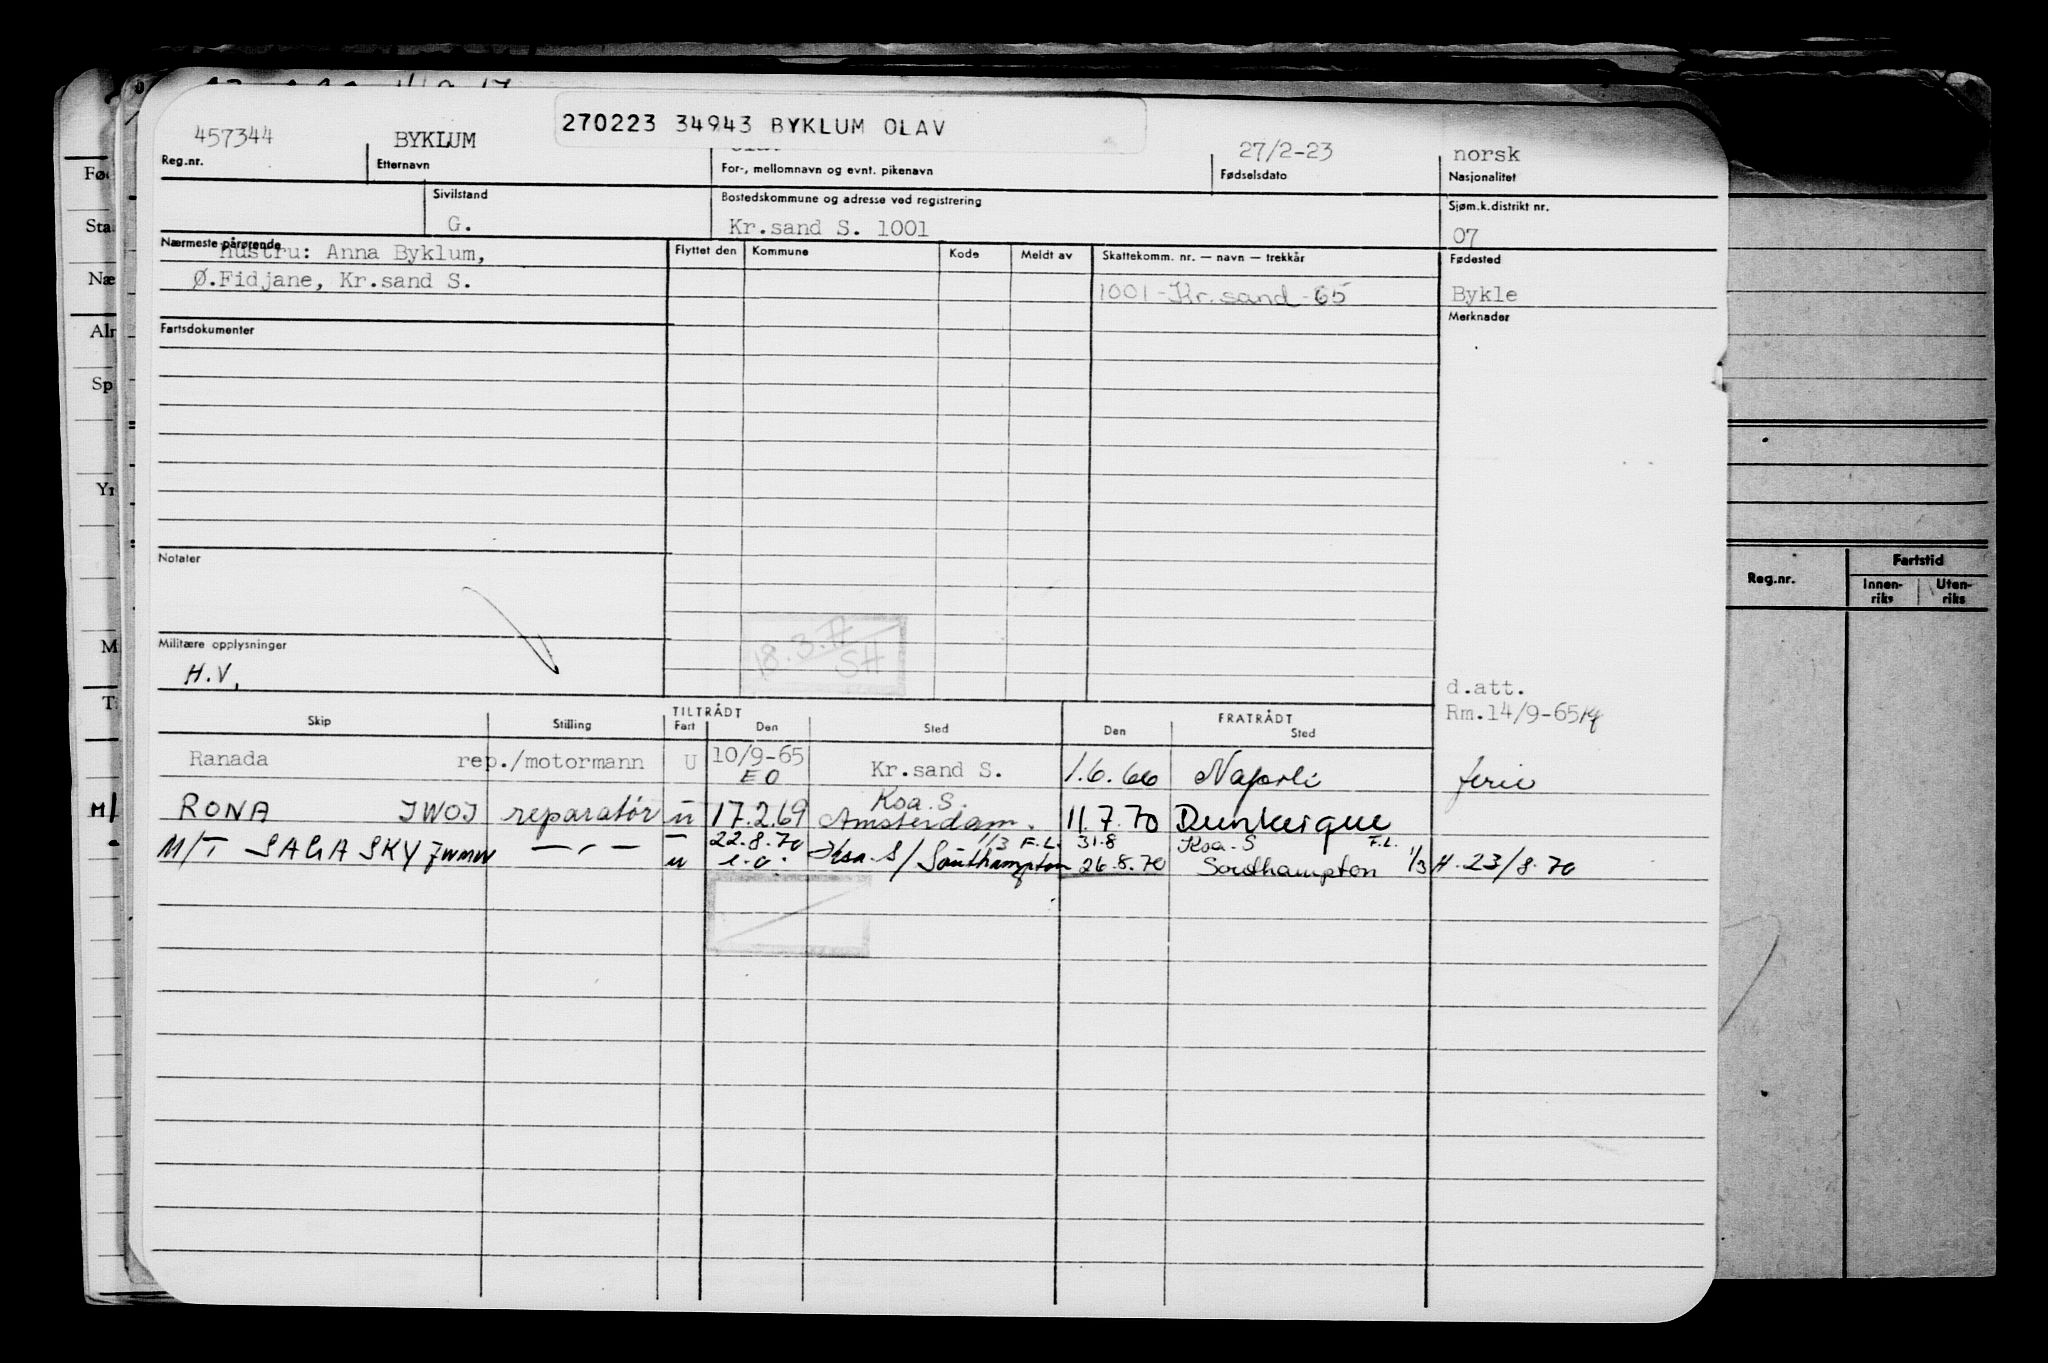 270223 34943 BYKLUM OLAV
457344 BYKLUM 27/2-23 norsk
Reg.nr. Etternavn For-, mellomnavn og evnt. pikenavn Fødselsdato Nasjonalitet
Sivilstand Bostedskommune og adresse ved registrering Sjøm.k.distrikt nr.
G. Kr.sand S. 1001 07
Nærmeste pårørende Flyttet den Kommune Kode Meldt av Skattekomm. nr. — navn — trekkår Fødested
Hustru: Anna Byklum,
Ø.Fidjane, Kr.sand S. 1001-Kr.sand-65 Bykle
Fartsdokumenter Merknader
Notater
Militære opplysninger
H.V.
18.3.77
SH
d.att.
Rm.14/9-65
TILTRÅDT FRATRÅDT
Skip Stilling Fart Den Sted Den Sted
Ranada rep./motormann U 10/9-65 Kr.sand S. 1.6.66 Napoli ferie
EO
Ksa. S.
RONA JWOJ reparatør u 17.2.69 Amsterdam. 11.7.70 Dunkerque
22.8.70 1/3 F.L. 31.8 Ksa. S F.L.
M/T SAGA SKY JWMW — " — u e.o. Ksa. S/Southampton 26.8.70 Southampton 1/3 H. 23/8.70
Fø
Sta
Næ
Alr
Sp
Yr
M
T
M
Reg.nr. Fartstid
Innen-riks Uten-riks